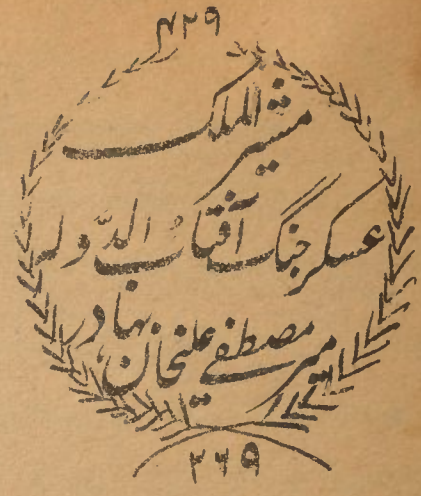 ۴۲۹
مشیر الملک
عسکر جنگ آفتاب الدّولہ
میر مصطفےٰ علیخان بہادر
۲۶۹